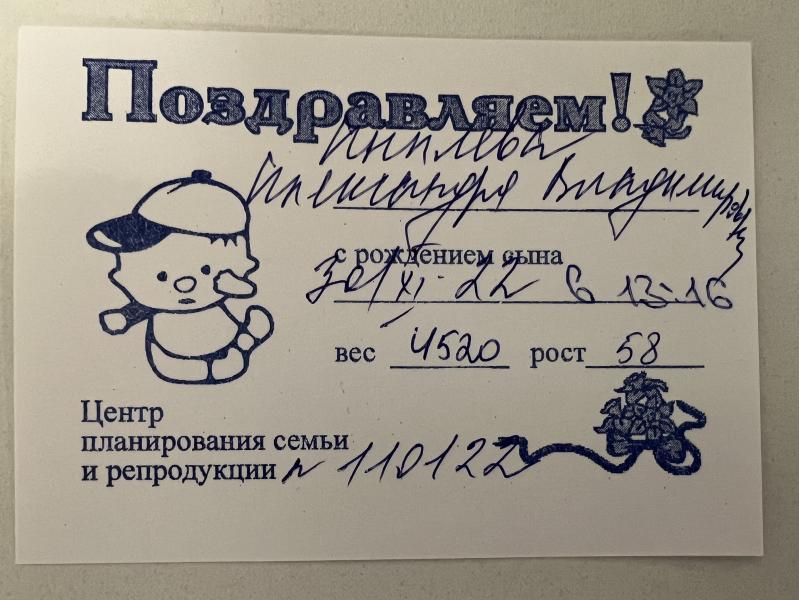 Поздравляем!
Александра Владимировна
с рождением сына
30/XI-22 в 13-16
вес 4520 рост 58
Центр
планирования семьи
и репродукции n 110122